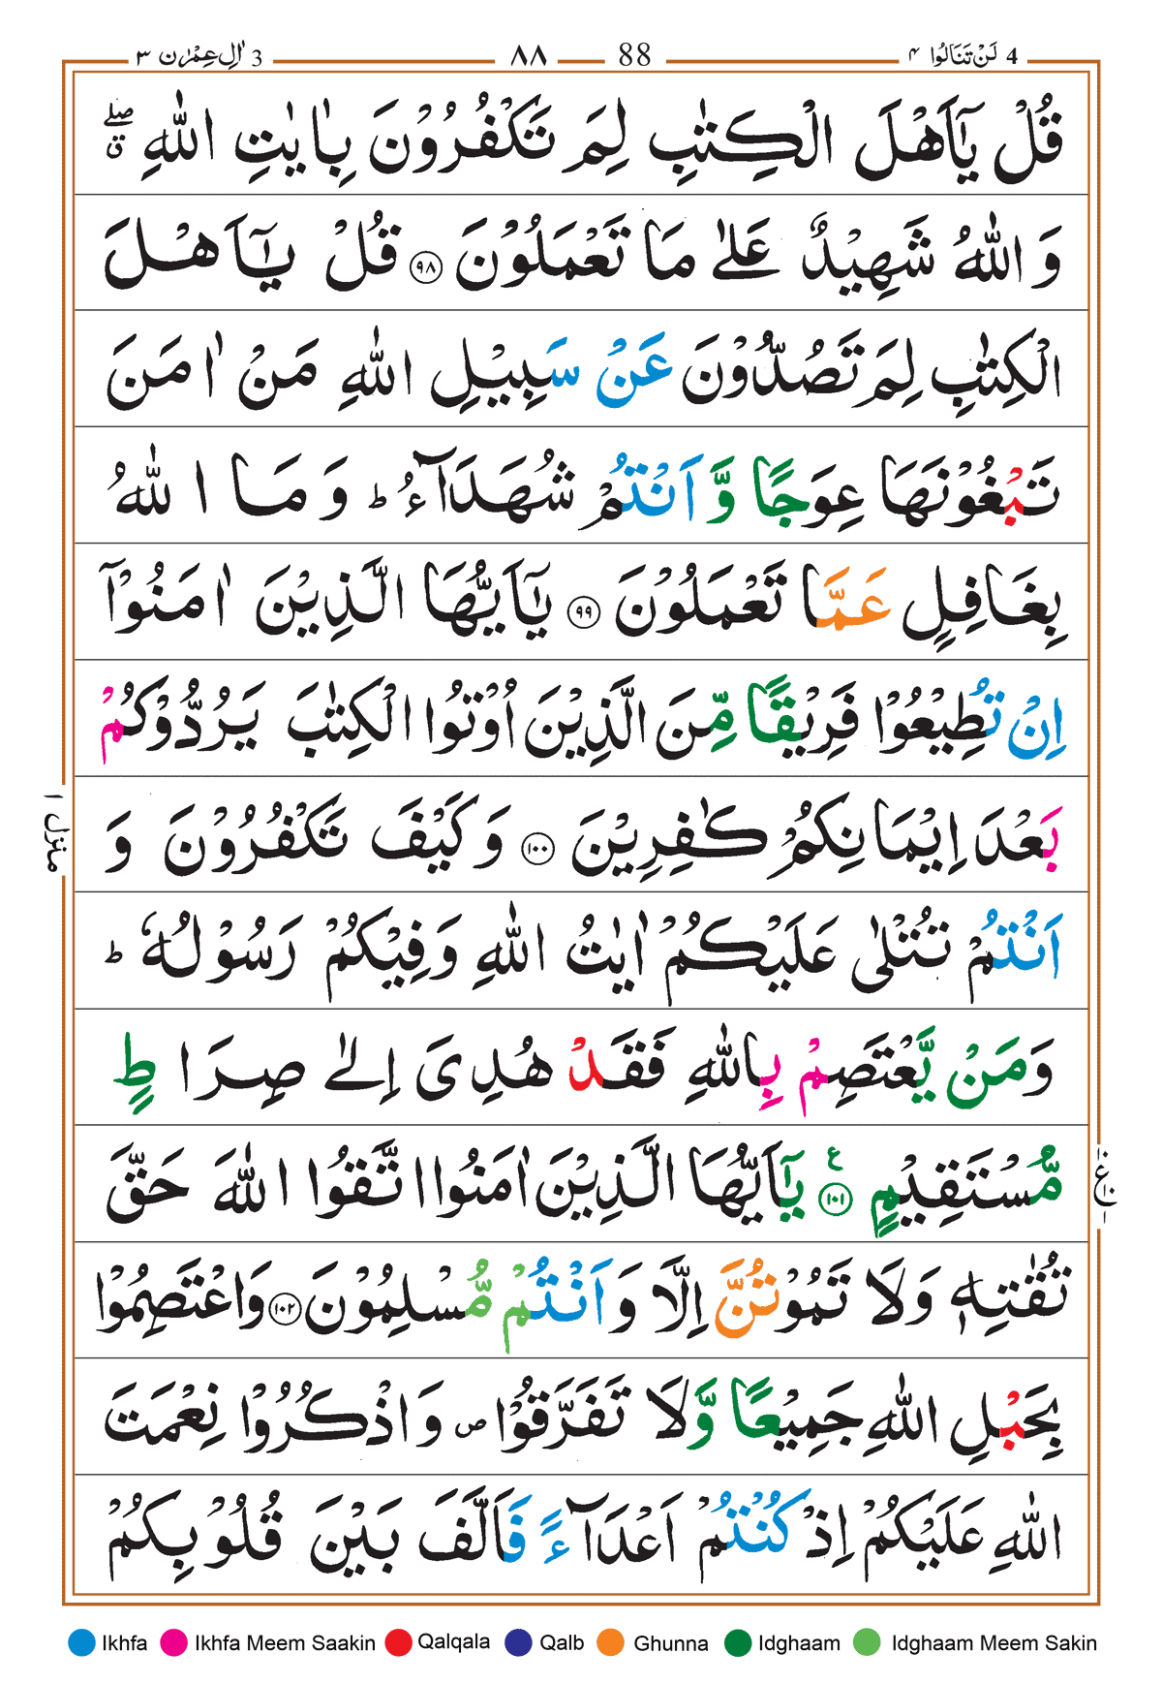 4 لَنْ تَنَالُوا ۴ 88 ۸۸ 3 اٰلِ عِمْرٰن ۳
قُلْ يٰۤاَهْلَ الْكِتٰبِ لِمَ تَكْفُرُوْنَ بِاٰيٰتِ اللّٰهِ ۖق
وَ اللّٰهُ شَهِيْدٌ عَلٰى مَا تَعْمَلُوْنَ ﴿۹۸﴾ قُلْ يٰۤاَهْلَ
الْكِتٰبِ لِمَ تَصُدُّوْنَ عَنْ سَبِيْلِ اللّٰهِ مَنْ اٰمَنَ
تَبْغُوْنَهَا عِوَجًا وَّ اَنْتُمْ شُهَدَآءُ ؕ وَ مَا اللّٰهُ
بِغَافِلٍ عَمَّا تَعْمَلُوْنَ ﴿۹۹﴾ يٰۤاَيُّهَا الَّذِيْنَ اٰمَنُوْۤا
اِنْ تُطِيْعُوْا فَرِيْقًا مِّنَ الَّذِيْنَ اُوْتُوا الْكِتٰبَ يَرُدُّوْكُمْ
بَعْدَ اِيْمَانِكُمْ كٰفِرِيْنَ ﴿۱۰۰﴾ وَ كَيْفَ تَكْفُرُوْنَ وَ
منزل ۱
اَنْتُمْ تُتْلٰى عَلَيْكُمْ اٰيٰتُ اللّٰهِ وَ فِيْكُمْ رَسُوْلُهٗ ؕ
وَ مَنْ يَّعْتَصِمْ بِاللّٰهِ فَقَدْ هُدِىَ اِلٰى صِرَاطٍ
مُّسْتَقِيْمٍ ﴿۱۰۱﴾ ع يٰۤاَيُّهَا الَّذِيْنَ اٰمَنُوا اتَّقُوا اللّٰهَ حَقَّ
تُقٰتِهٖ وَ لَا تَمُوْتُنَّ اِلَّا وَ اَنْتُمْ مُّسْلِمُوْنَ ﴿۱۰۲﴾ وَ اعْتَصِمُوْا
بِحَبْلِ اللّٰهِ جَمِيْعًا وَّ لَا تَفَرَّقُوْا ص وَ اذْكُرُوْا نِعْمَتَ
اللّٰهِ عَلَيْكُمْ اِذْ كُنْتُمْ اَعْدَآءً فَاَلَّفَ بَيْنَ قُلُوْبِكُمْ
Ikhfa Ikhfa Meem Saakin Qalqala Qalb Ghunna Idghaam Idghaam Meem Sakin